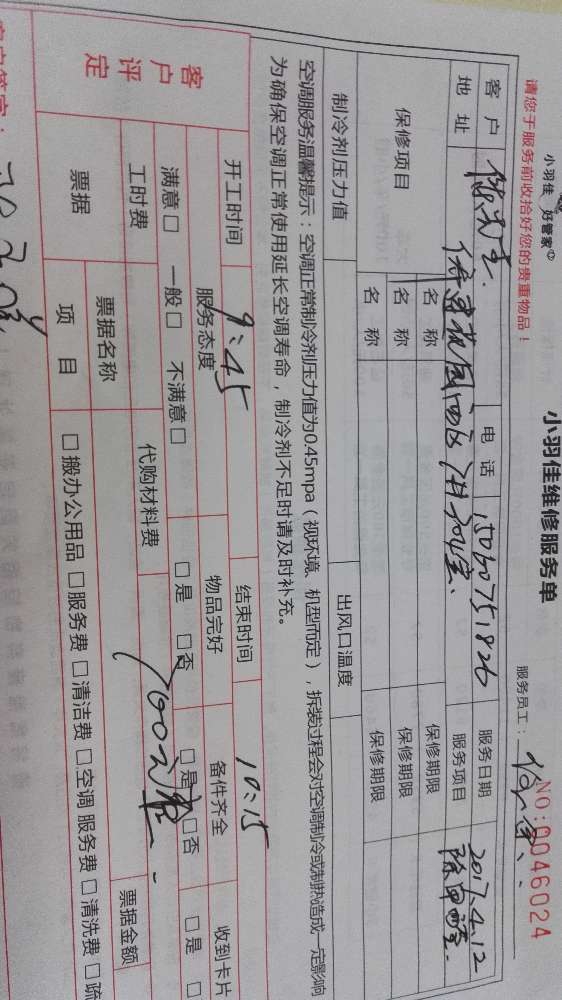 小羽佳 好管家
小羽佳维修服务单
NO:0046024
请您于服务前收拾好您的贵重物品！
服务员工：
客户 电话 15060751826 服务日期 2017.4.12
地址 服务项目 除甲醛
保修项目 名称 保修期限
名称 保修期限
名称 保修期限
制冷剂压力值 出风口温度
空调服务温馨提示：空调正常制冷剂压力值为0.45mpa（视环境、机型而定），拆装过程会对空调制冷或制热造成一定影响
为确保空调正常使用延长空调寿命，制冷剂不足时请及时补充。
开工时间 9:45 结束时间 10:15
客户评定 服务态度 物品完好 备件齐全 收到卡片
满意□ 一般□ 不满意□ □是 □否 □是 □否 □是 □
工时费 代购材料费
票据 票据名称 票据金额
项目 □搬办公用品 □服务费 □清洁费 □空调服务费 □清洗费 □疏